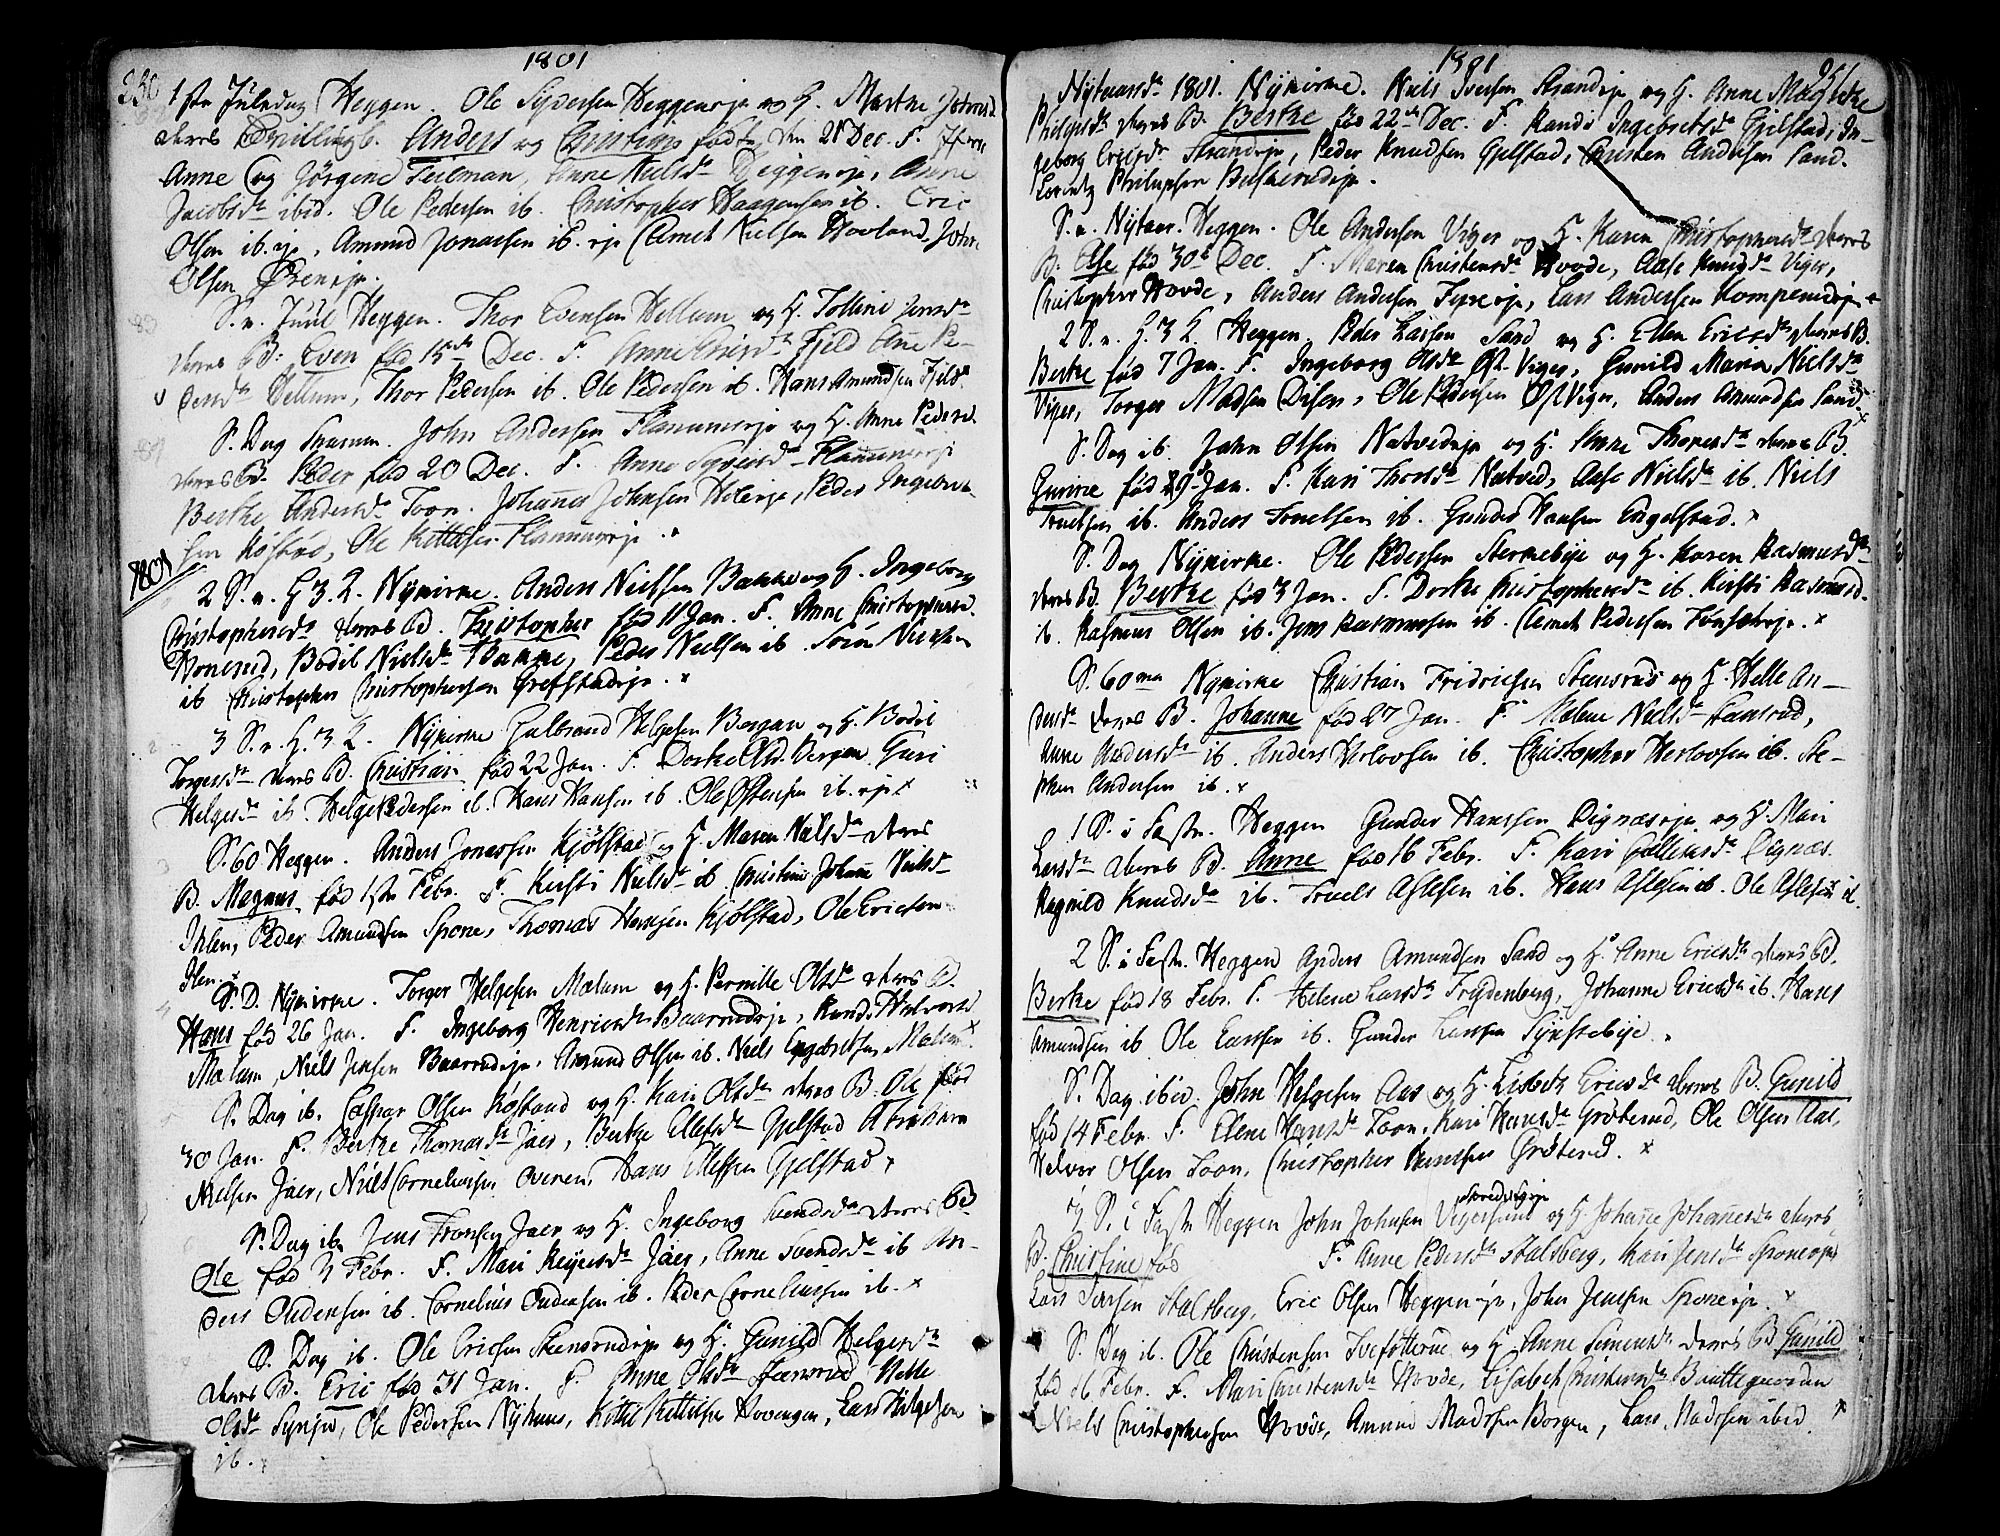 1801
1ste Juledag Heggen. Ole Sygersen Heggen eje og H. Marthe Johnsd.
deres Tvillingb. Anders og Christian født den 21 Dec. F.
Anne og Jörgene Teilman, Anne Nielsda Heggen eje, Anne
Jacobsda ibid. Ole Pedersen ib. Christopher Haagensen ib. Eric
Olsen ib. eje, Amund Jonassen ib. eje Clemet Nielsen Hovland, John
Olsen Øren eje.
S. n. Juul Heggen. Thor Evensen Hellum og H. Tolline Jensda
deres B. Even fød 15de Dec. F. Anne Ericsda Fjeld Anne Pe-
dersda Hellum, Thor Pedersen ib. Ole Pedersen ib. Hans Amundsen Fjeld.
S. Dag Snarum. John Andersen Flannum eje og H. Anne Pedersd.
deres B. Peder fød 20 Dec. F. Anne Flannum eje
Berthe Andersda Toon. Johannes Johnsen Hole eje, Peder Ingebret-
sen Køstad, Ole Kittilsen Flannum eje.
1801
2 S. n. H. 3. K. Nykirke. Anders Nielsen Bakke og H. Ingeborg
Christophersda deres B. Christopher fød 11 Jan. F. Anne Christophersd.
Honerud, Bodil Nielsda Bakke, Peder Nielsen ib. Sören Nielsen
ib Christopher Christophersen Grefstad eje.
3 S. n. H. 3 K. Nykirke Gulbrand Helgesen Bergan og H. Bodil
Torgersda deres B. Christian fød 22 Jan. F. Dorthe Olsd. Bergan Guri
Helgesda ib Helge Pedersen ib. Hans Hansen ib. Ole Østensen ib. eje
S. 60 Heggen. Anders Jonassen Kjölstad og H. Maren Nielsda deres
B. Magnus fød 1ste Febr. F. Kirsti Nielsda ib Christine Johanne Nielsda
Ihlen, Peder Amundsen Spone, Thomas Hansen Kjölstad, Ole Ericsen
Ilen.
S. D. Nykirke. Torger Helgesen Mælum og H. Pernille Olsda deres B.
Hans fød 26 Jan. F. Ingeborg Henricsda Baarrud eje, Randi Halvorsd
Mælum, Niels Jensen Baarrud eje, Amund Olsen ib. Niels Engebretsen Mælum.
S. Dag ib. Caspar Olsen Køstand og H. Kari Olsda deres B. Ole fød
30 Jan. F. Berthe Thomasda Jaer, Berthe Ellefsda Gjelstad Abraham
Nielsen Jaer, Niels Corneliussen Overen, Hans Ellefsen Gjelstad
S. Dag ib. Jens Tronsen Jaer og H. Ingeborg Svendsda deres B
Ole fød 3 Febr. F. Mari Reyersda Jaer, Anne Svendsda ib An-
ders Oudensen ib. Cornelius Oudensen ib. Peder Corneliussen ib.
S. Dag ib. Ole Ericsen Steensrud eje og H. Gunild Helgesda
deres B. Eric fød 31 Jan. F. Anne Olsda Steensrud Helle
Olsda Synjer, Ole Pedersen Nyhuus, Kittil Kittilsen Hovengen, Lars Helgesen
ib.
1801
Nytaarsd. 1801. Nykirke. Niels Iversen Strand eje og H. Anne Margrethe
Philipsda deres B. Berthe fød 22de Dec. F. Randi Ingebretsda Gjelstad, In-
geborg Ericsda Strand eje, Peder Knudsen Gjelstad, Christen Andersen Sand.
Lorentz Philipsen Buskerud eje.
S. n. Nytaar. Heggen. Ole Andersen Viger og H. Karen Christophersda deres
B. Else fød 30te Dec. F. Maren Christensda Hovde, Aase Knudsda Viger,
Christopher Hovde, Anders Andersen Fyre eje, Lars Andersen Kompen eje
2 S. n. H. 3 K. Heggen. Peder Larsen Sand og H. Ellen Ericsda deres B.
Berthe fød 7 Jan. F. Ingeborg Olsda Øst Viger, Gunild Maria Nielsda
Viger, Torger Madsen Disen, Ole Pedersen Øst Viger, Anders Amundsen Sand.
S. Dag ib. John Olsen Natved eje og H. Anne Thoresda deres B.
Gurine fød 29 Jan. F. Kari Thorsda Natved, Aase Nielsda ib. Niels
Truelsen ib. Anders Truelsen ib. Gunder Hansen Engelstad.
S. Dag Nykirke. Ole Pedersen Stennebye og H. Karen Rasmusda
deres B. Berthe fød 3 Jan. F. Dorthe Christophersda ib. Kirsti Rasmusd.
ib. Rasmus Olsen ib. Jens Rasmussen ib. Clemet Pedersen Fonset eje.
S. 60ma Nykirke Christian Fridricsen Steensrud og H. Helle An-
dersda deres B. Johanne fød 27 Jan. F. Malene Nielsda Steensrud,
Anne Andersda ib. Anders Herlovsen ib. Christopher Herlovsen ib. Ste-
phen Andersen ib.
1 S. i Faste. Heggen Gunder Hanssen Dignæs eje og H. Mari
Larsda deres B. Anne fød 16 Febr. F. Kari Gulliksda Dignæs
Ragnild Knudsda ib. Truels Aslesen ib. Hans Aslesen ib. Ole Aslesen ib.
2 S. i Faste. Heggen Anders Amundsen Sand og H. Anne Ericsda deres B.
Berthe fød 18 Febr. F. Helene Larsda Frydenberg, Johanne Ericsda ib. Hans
Amundsen ib Ole Larssen ib. Gunder Larssen Synstebye.
S. Dag ibid. John Helgesen Aas og H. Lisbeth Ericsda deres B. Gunild
fød 14 Febr. F. Elene Hansda Toon, Kari Hansda Gröterud, Ole Olsen Aas,
Helvor Olsen Toon, Christopher Hanssen Gröterud.
3 S. i Faste Heggen John Johnsen Vegersund og H. Johanne Johannesda deres
B. Christine fød F. Anne Pedersda Stalsberg, Kari Jensda Spone eje
Lars Iversen Stalsberg, Eric Olsen Heggen eje, John Jensen Spone eje.
S. Dag ib. Ole Christensen Tvefötterue og H Anne Simensda deres B Gunild
fød 16 Febr. F. Mari Christensda Hovde, Lisabet Christensda
Niels Christophersen Hovde, Amund Madssen Borgen, Lars Madssen ibid.